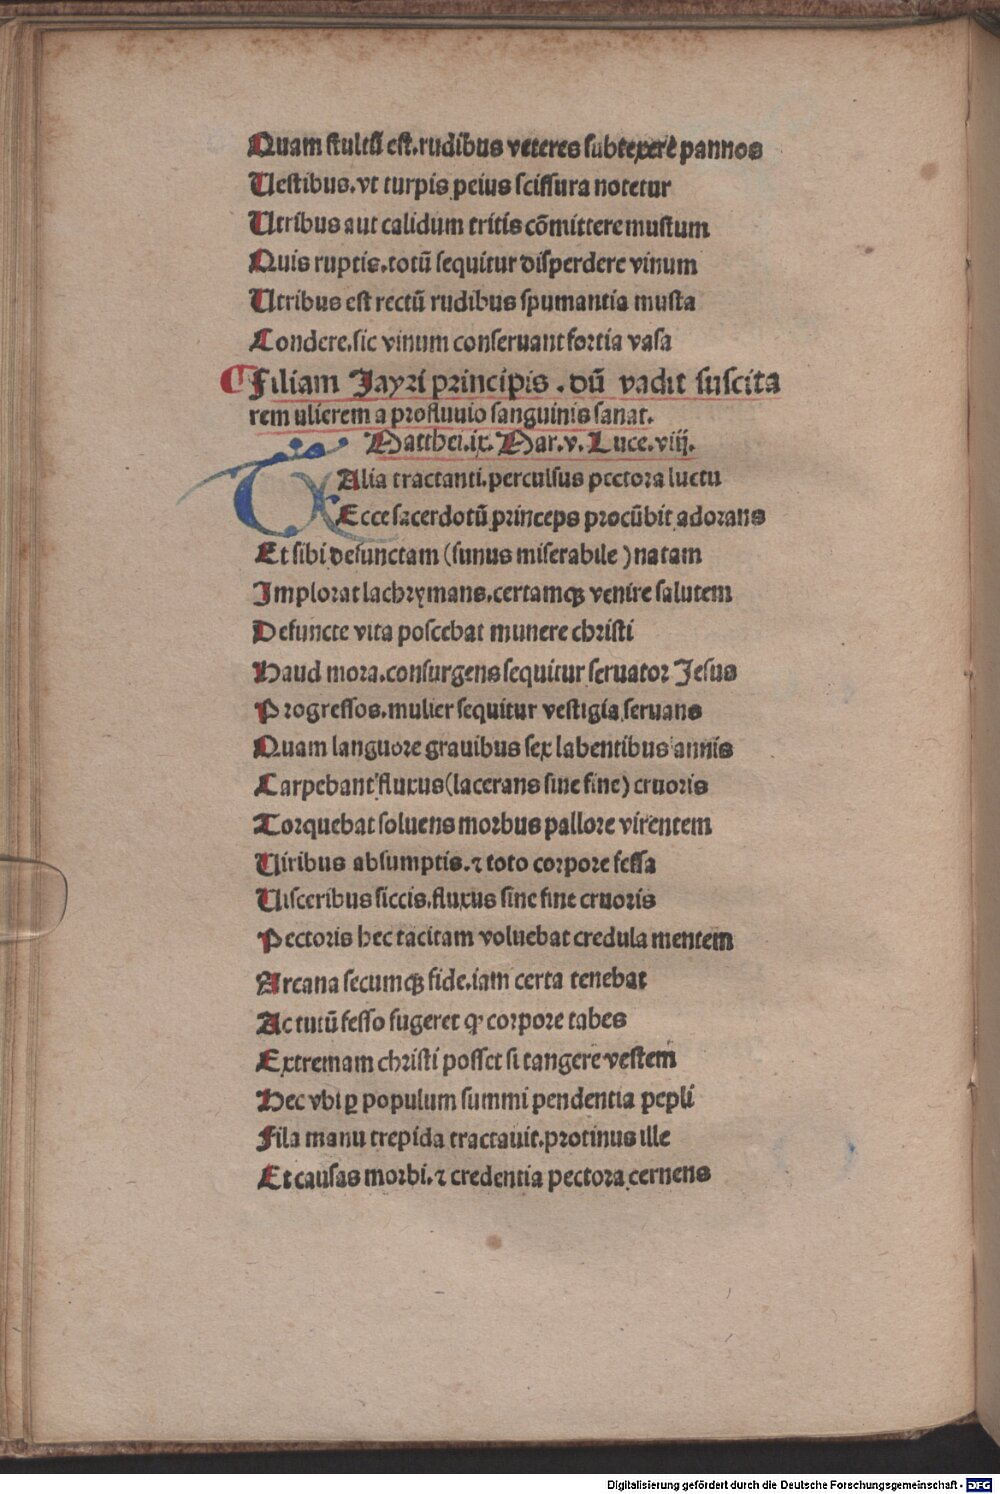 Quam stultũ est.rudibus veteres subtexere pannos
Uestibus.vt turpis peius scissura notetur
Utribus aut calidum tritis cõmittere mustum
Quis ruptis.totũ sequitur disperdere vinum
Utribus est rectũ rudibus spumantia musta
Condere.sic vinum conseruant fortia vasa
¶ Filiam Jayri principis . dũ vadit suscita
rem ulierem a profluuio sanguinis sanat.
Matthei.ix. Mar.v. Luce.viij.
TAlia tractanti.perculsus pectora luctu
Ecce sacerdotũ princeps procũbit adorans
Et sibi defunctam (funus miserabile) natam
Implorat lachrymans.certamqꝫ venire salutem
Defuncte vita poscebat munere christi
Haud mora.consurgens sequitur seruator Jesus
Progressos.mulier sequitur vestigia seruans
Quam languore grauibus sex labentibus annis
Carpebant fluxus(lacerans sine fine) cruoris
Torquebat soluens morbus pallore virentem
Uiribus absumptis.⁊ toto corpore fessa
Uisceribus siccis.fluxus sine fine cruoris
Pectoris hec tacitam voluebat credula mentem
Arcana secumqꝫ fide.iam certa tenebat
Ac tutũ fesso fugeret qꝫ corpore tabes
Extremam christi posset si tangere vestem
Hec vbi ꝑ populum summi pendentia pepli
Fila manu trepida tractauit.protinus ille
Et causas morbi.⁊ credentia pectora cernens
Digitalisierung gefördert durch die Deutsche Forschungsgemeinschaft - DFG